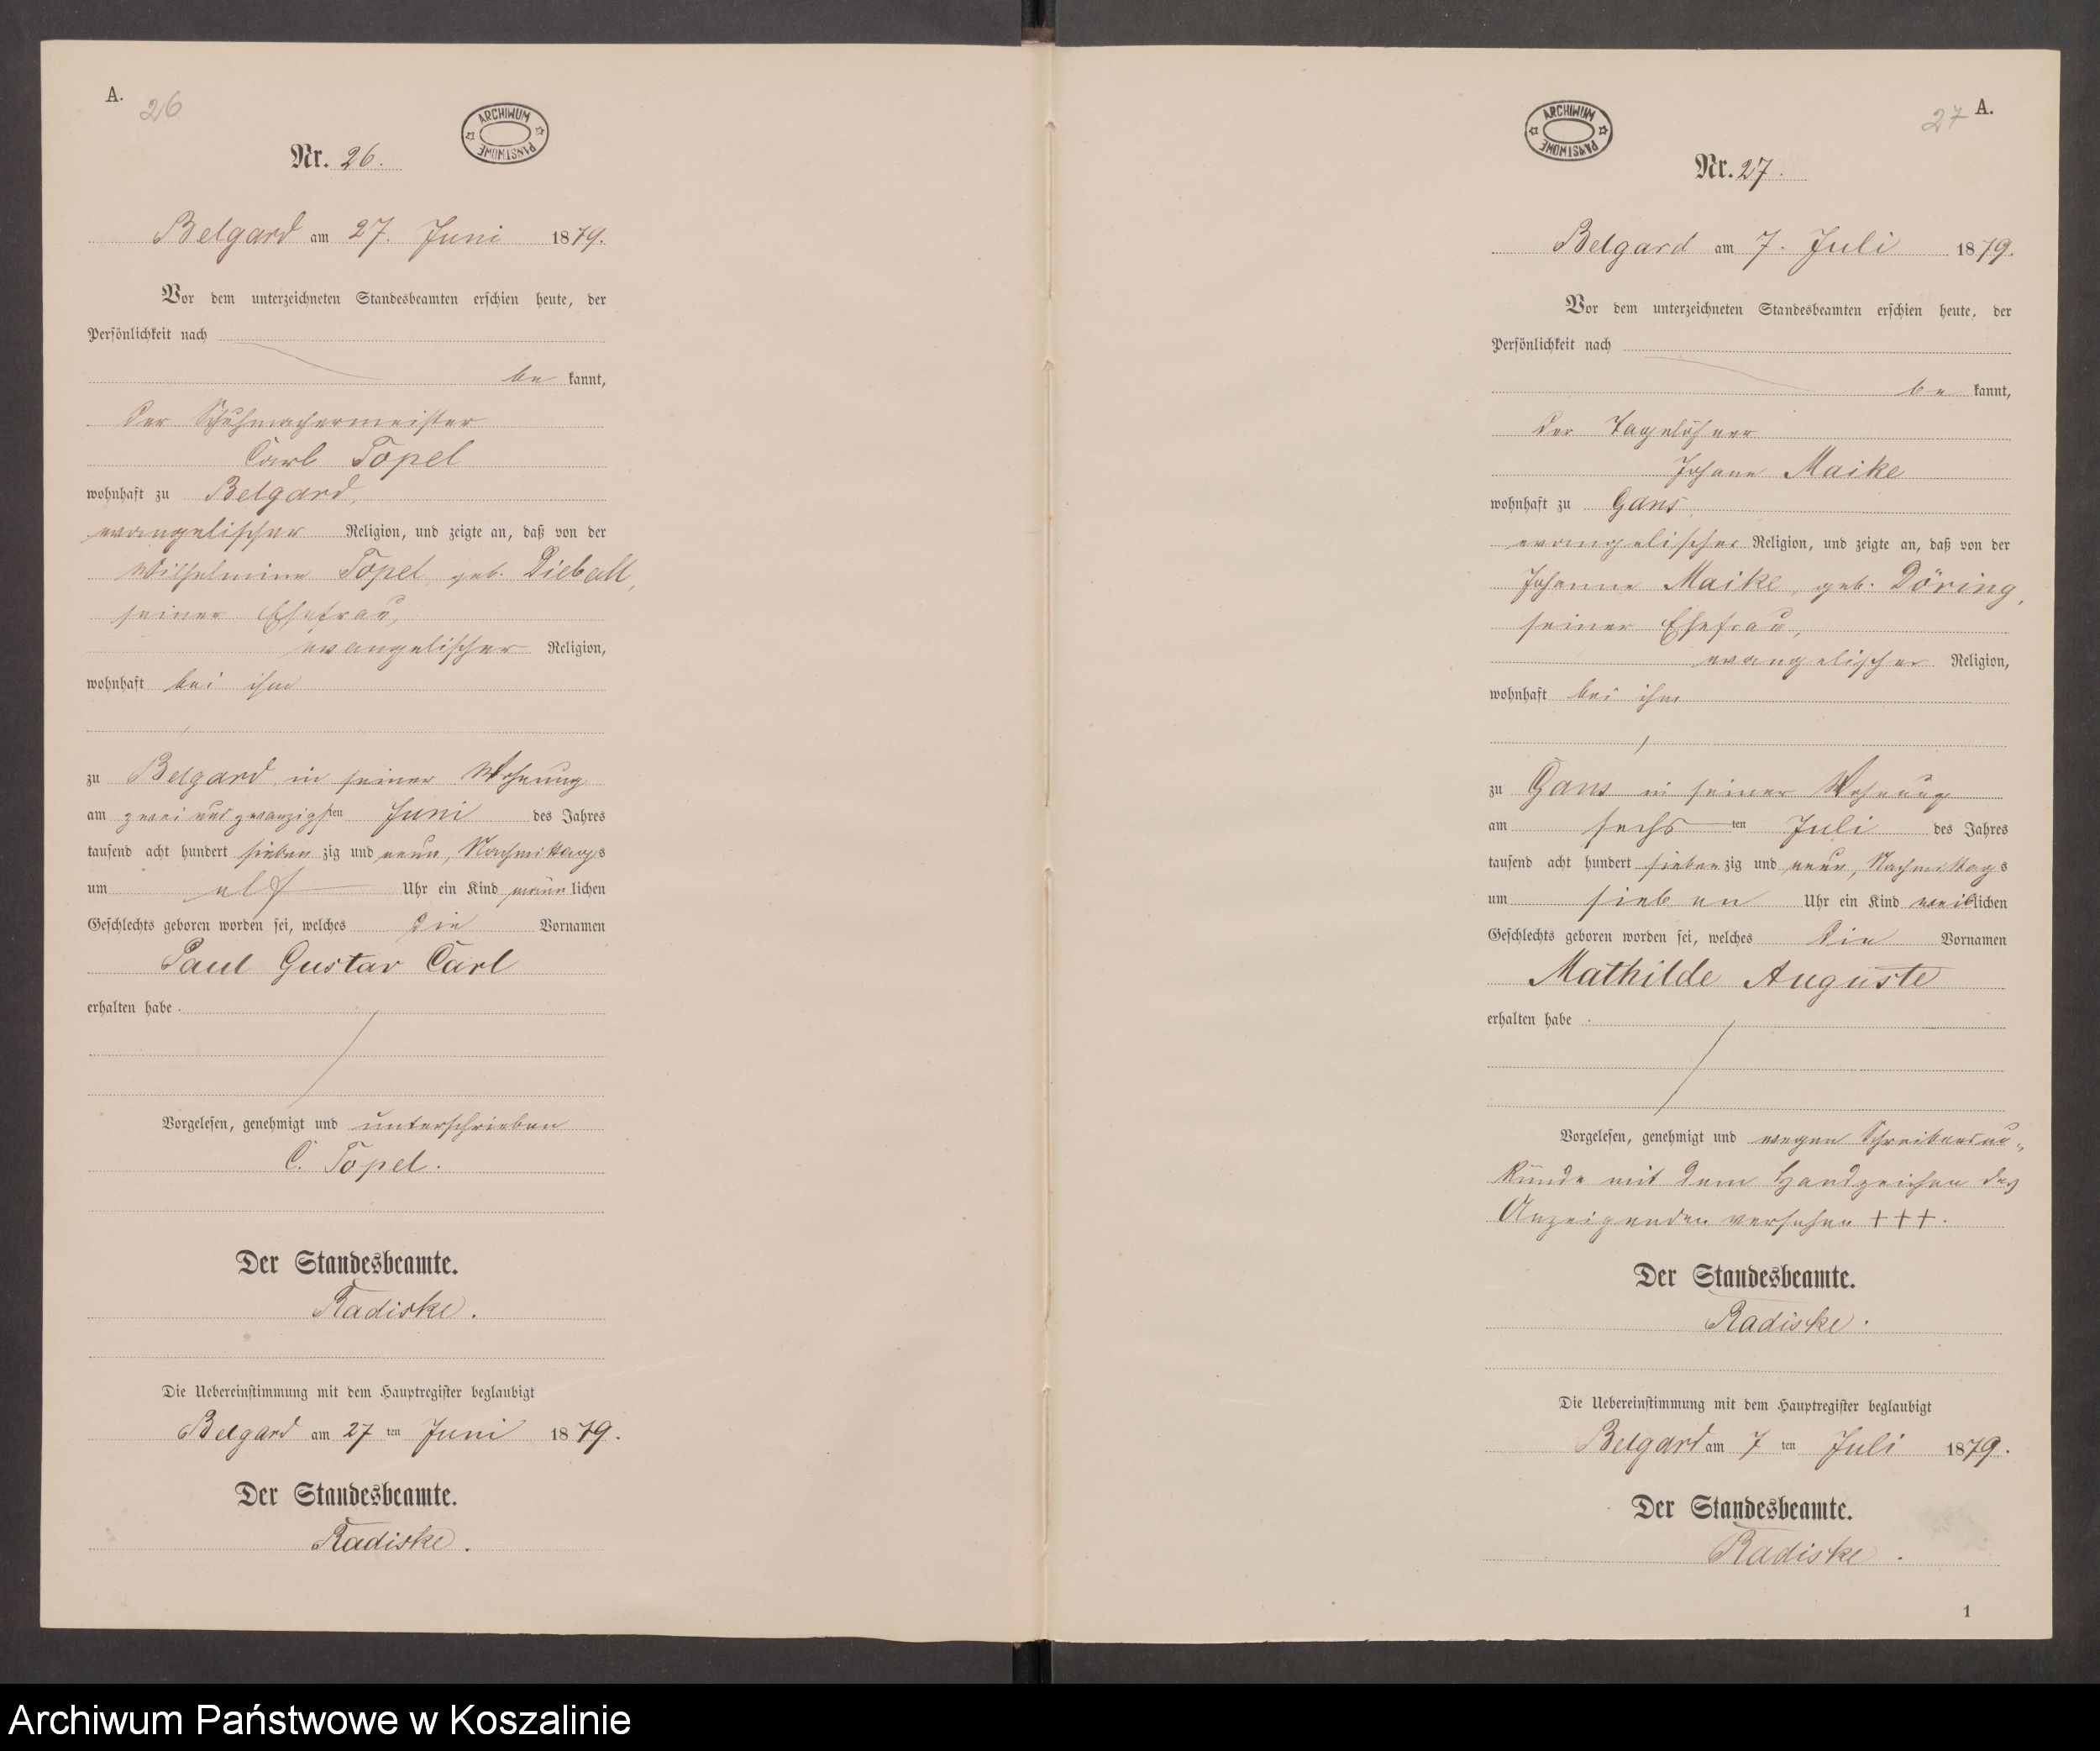 A.
26
ARCHIWUM PAŃSTWOWE
Nr. 26.
Belgard am 27. Juni 1879.
Vor dem unterzeichneten Standesbeamten erschien heute, der
Persönlichkeit nach
be kannt,
der Schuhmachermeister
Carl Topel
wohnhaft zu Belgard,
evangelischer Religion, und zeigte an, daß von der
Wilhelmine Topel, geb. Dieball,
seiner Ehefrau,
evangelischer Religion,
wohnhaft bei ihm
zu Belgard in seiner Wohnung
am zwei und zwanzigsten Juni des Jahres
tausend acht hundert sieben zig und neun, Nachmittags
um elf Uhr ein Kind männlichen
Geschlechts geboren worden sei, welches die Vornamen
Paul Gustav Carl
erhalten habe.
Vorgelesen, genehmigt und unterschrieben
C. Topel.
Der Standesbeamte.
Radiske.
Die Uebereinstimmung mit dem Hauptregister beglaubigt
Belgard am 27 ten Juni 1879.
Der Standesbeamte.
Radiske.
ARCHIWUM PAŃSTWOWE
27 A.
Nr. 27.
Belgard am 7. Juli 1879.
Vor dem unterzeichneten Standesbeamten erschien heute, der
Persönlichkeit nach
be kannt,
der Tagelöhner
Johann Maike
wohnhaft zu Gans,
evangelischer Religion, und zeigte an, daß von der
Johanne Maike, geb. Döring,
seiner Ehefrau,
evangelischer Religion,
wohnhaft bei ihm
zu Gans in seiner Wohnung
am sechs ten Juli des Jahres
tausend acht hundert sieben zig und neun, Nachmittags
um sieben Uhr ein Kind weiblichen
Geschlechts geboren worden sei, welches die Vornamen
Mathilde Auguste
erhalten habe.
Vorgelesen, genehmigt und wegen Schreibensun-
kunde mit dem Handzeichen des
Anzeigenden versehen +++.
Der Standesbeamte.
Radiske.
Die Uebereinstimmung mit dem Hauptregister beglaubigt
Belgard am 7 ten Juli 1879.
Der Standesbeamte.
Radiske.
1
Archiwum Państwowe w Koszalinie